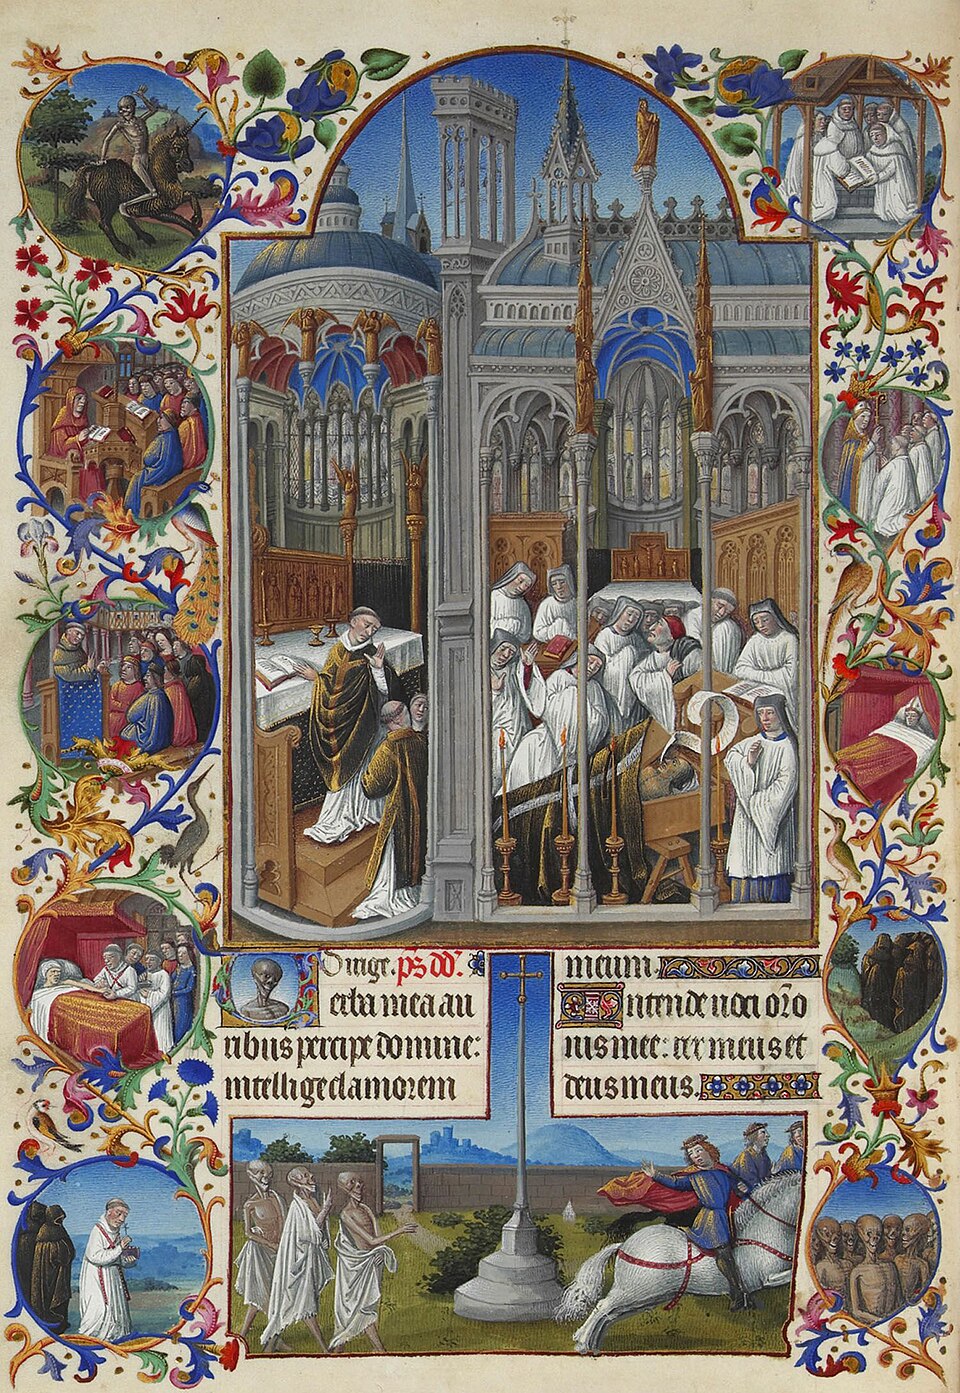 Dirige. p̄s dd̄.
Verba mea au
ribus percipe domine:
intellige clamorem
meum.
Intende voci or̄o
nis mee: rex meus et
deus meus.